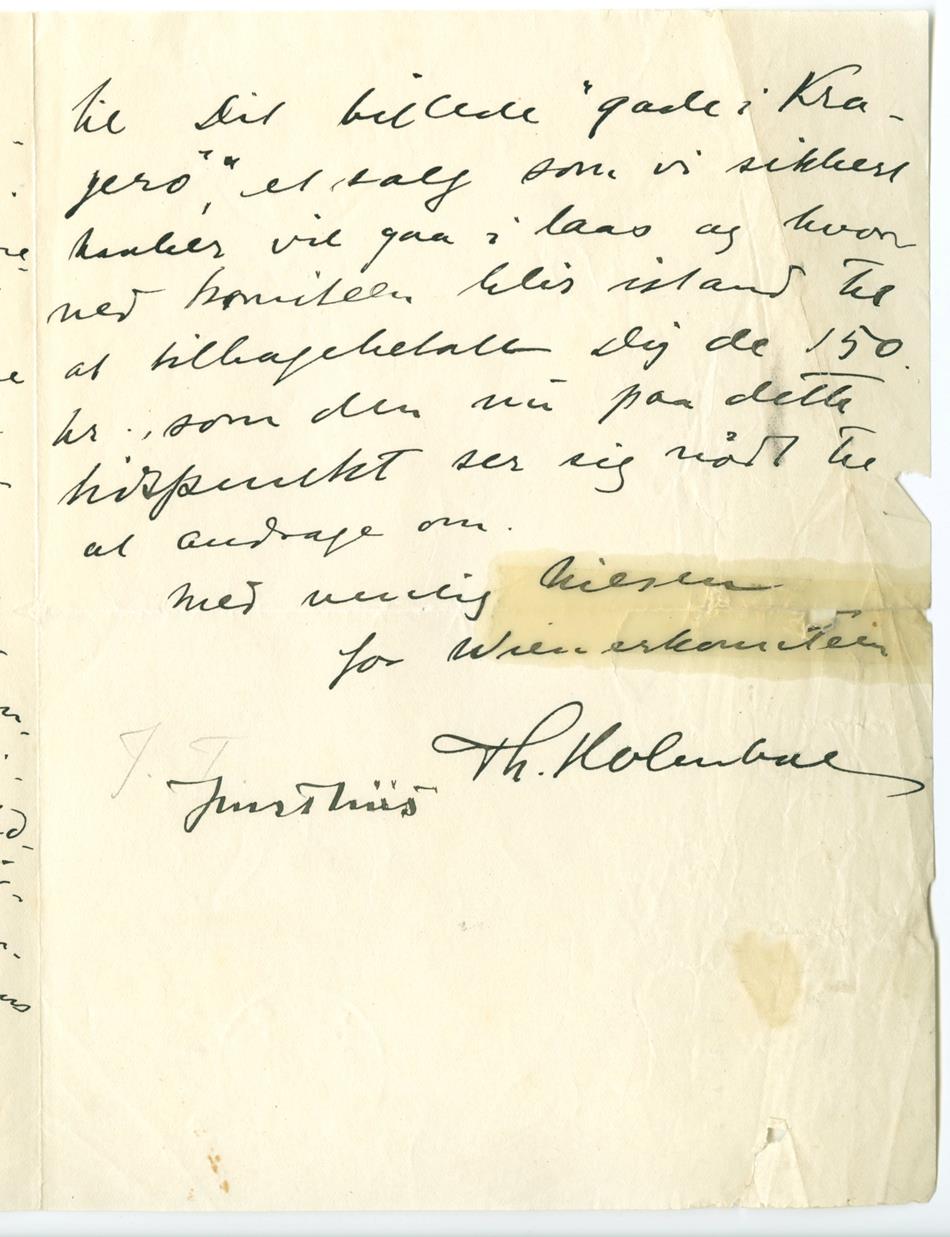 til Dit billede "gade i Kra-
gerö", et salg som vi sikkert
haaber vil gaa i laas og hvor
ved komiteen blir istand til
at tilbagebetale Dig de 150
kr., som den nu paa dette
tidspunkt ser sig nödt til
at andrage om.
Med venlig hilsen
for Wienerkomiteen
Th. Holmboe